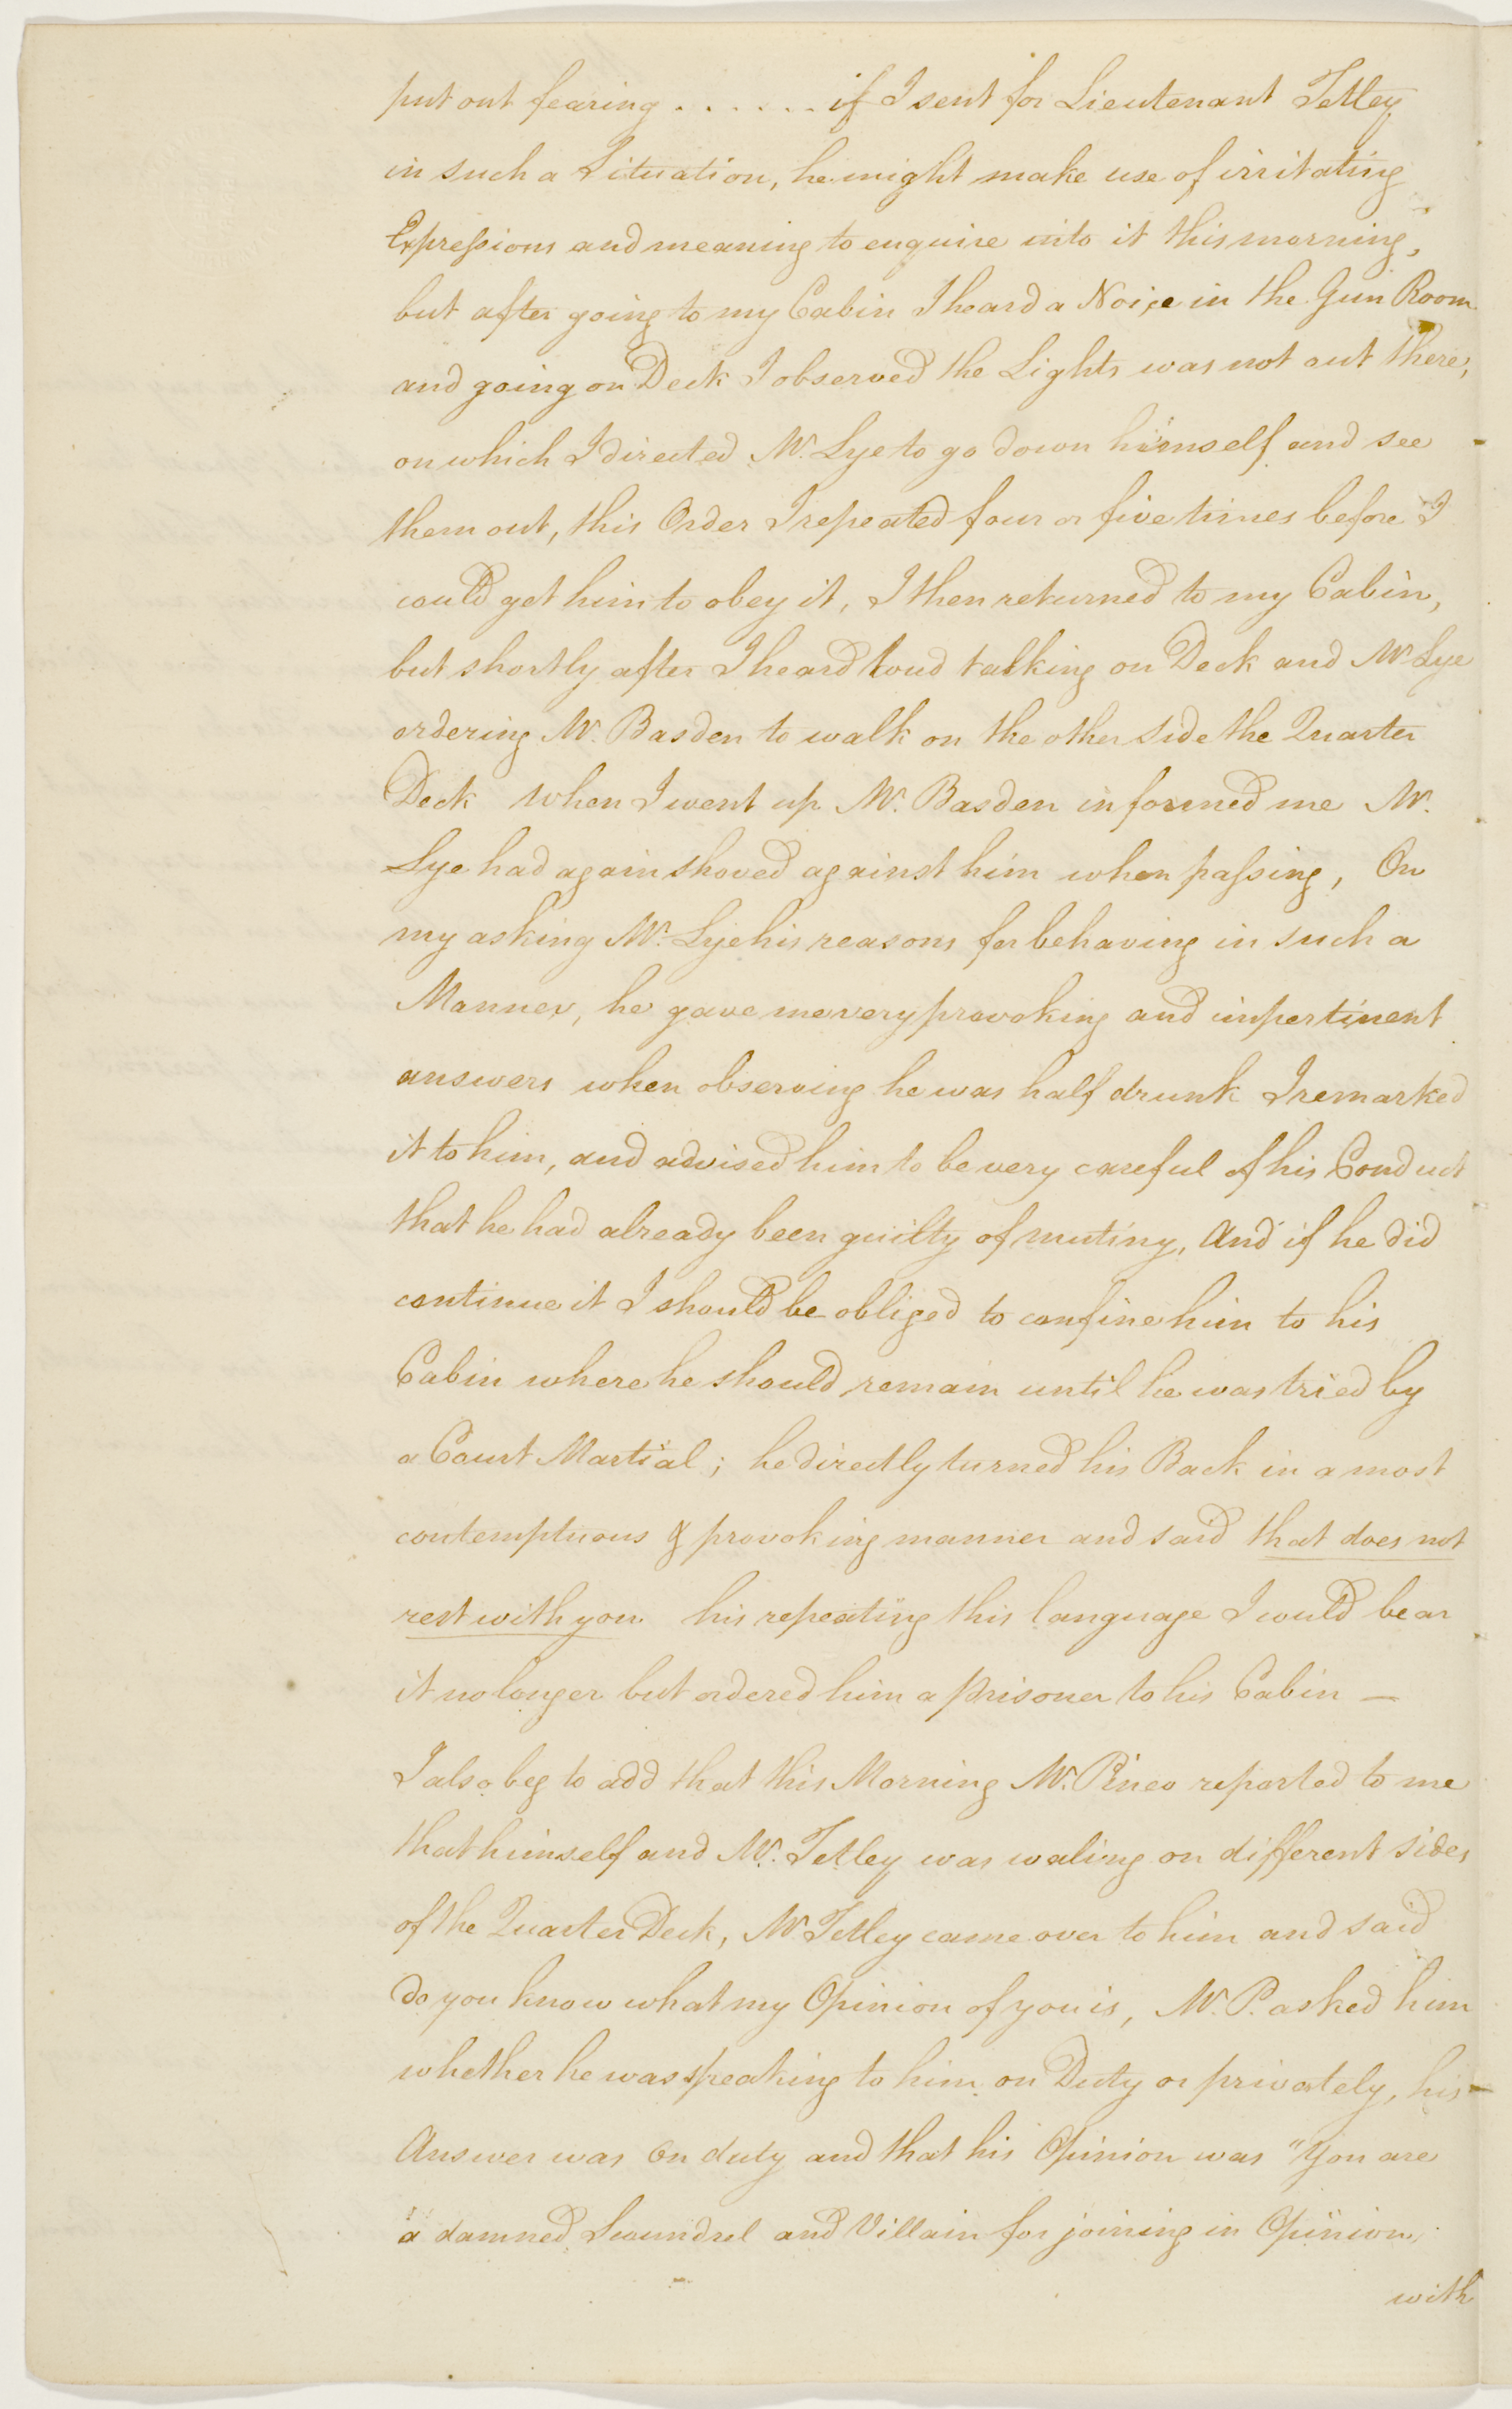 put out fearing . . . . . . if I sent for Lieutenant Tetley
in such a Situation, he might make use of irritating
Expressions and meaning to enquire into it this morning,
but after going to my Cabin I heard a Noise in the Gun Room
and going on Deck I observed the Lights was not out there,
on which I directed Mr. Lye to go down himself and see
them out, this Order I repeated four or five times before I
could get him to obey it, I then returned to my Cabin,
but shortly after I heard loud talking on Deck and Mr Lye
ordering Mr. Basden to walk on the other side the Quarter
Deck when I went up Mr. Basden informed me Mr.
Lye had again shoved against him when passing, On
my asking Mr. Lye his reasons for behaving in such a
Manner, he gave me very provoking and impertinent
answers when observing he was half drunk I remarked
it to him, and advised him to be very careful of his Conduct
that he had already been guilty of mutiny, And if he did
continue it I should be obliged to confine him to his
Cabin where he should remain until he was tried by
a Court Martial ; he directly turned his Back in a most
contemptuous & provoking manner and said that does not
rest with you his repeating this language I would bear
it no longer but ordered him a prisoner to his Cabin —
I also beg to add that this Morning Mr. Pineo reported to me
that himself and Mr. Tetley was waling on different sides
of the Quarter Deck, Mr Tetley came over to him and said
do you know what my Opinion of you is, Mr. P. asked him
whether he was speaking to him on Duty or privately, his
Answer was On duty and that his Opinion was "You are
a damned Scoundrel and Villain for joining in Opinion
with